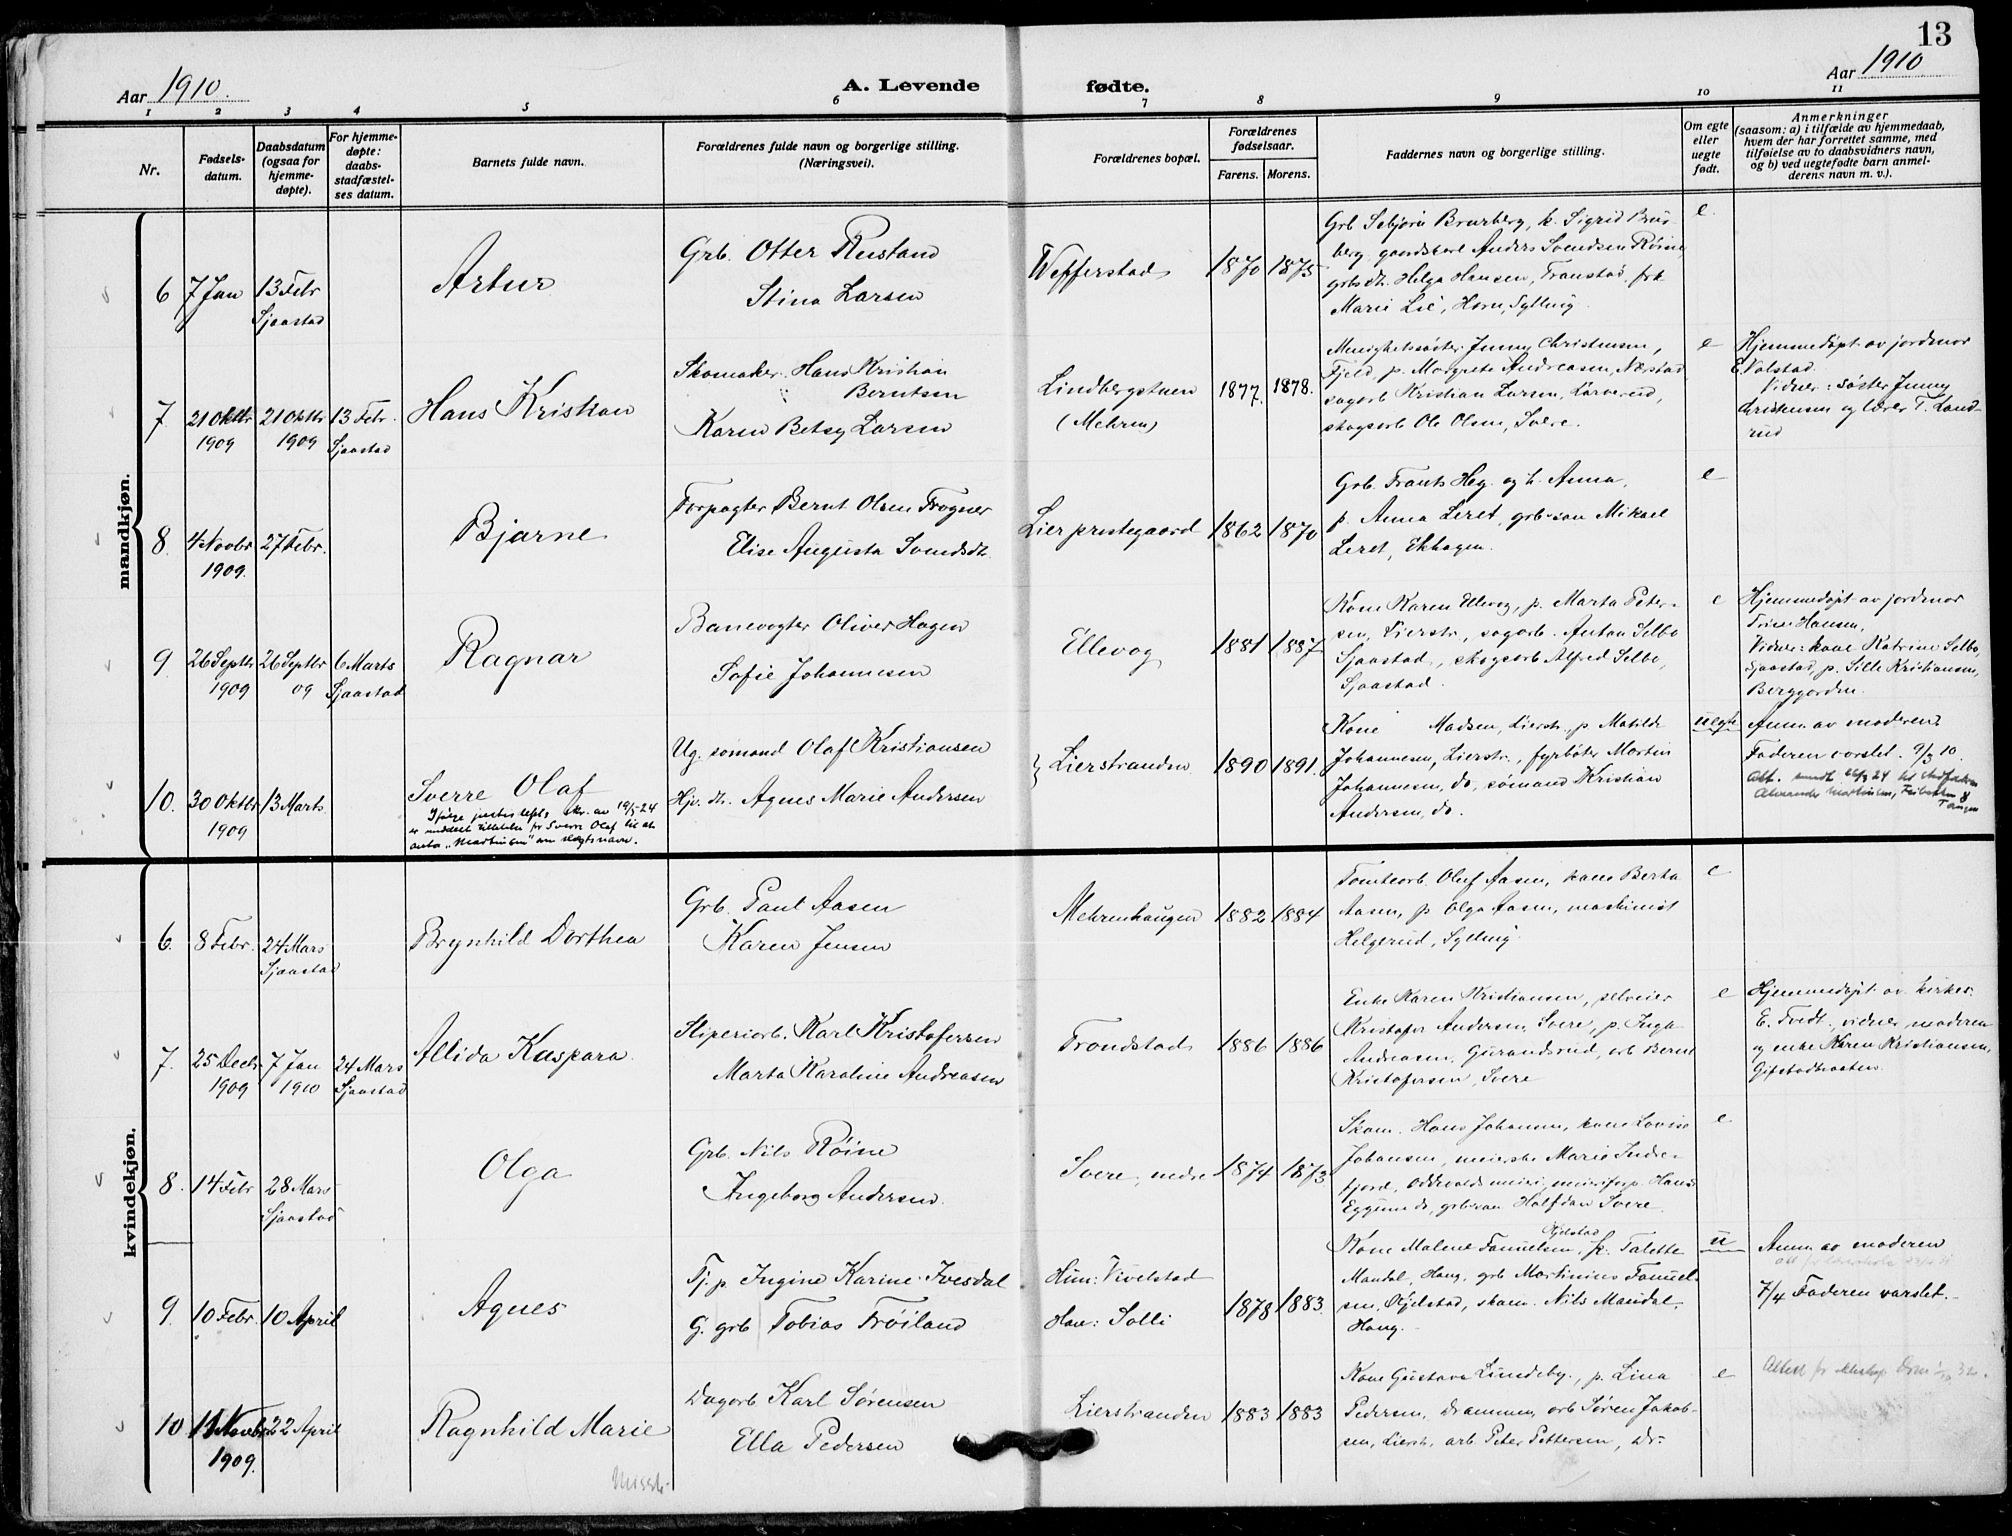 13
Aar 1910.
A. Levende fødte.
Aar 1910
1 2 3 4 5 6 7 8 9 10 11
Nr.
Fødsels-
datum.
Daabsdatum
(ogsaa for
hjemme-
døpte).
For hjemme-
døpte:
daabs-
stadfæstel-
ses datum.
Barnets fulde navn.
Forældrenes fulde navn og borgerlige stilling.
(Næringsvei).
Forældrenes bopæl.
Forældrenes
fødselsaar.
Farens. Morens.
Faddernes navn og borgerlige stilling.
Om egte
eller
uegte
født.
Anmerkninger
(saasom: a) i tilfælde av hjemmedaab,
hvem der har forrettet samme, med
tilføielse av to daabsvidners navn,
og b) ved uegtefødte barn anmel-
derens navn m. v.).
mandkjøn.
6 7 Jan 13 Febr
Sjaastad
Artur
Grb. Otter Rustand
Stina Larsen
Wefferstad
1870 1875
Grb Sebjørn Brurberg, k. Sigrid Brur-
berg, gaardskarl Anders Svendsen Røine,
grbsdt. Helga Hansen, Transtad, frk
Marie Lie, Horn, Sylling.
e.
7 21 Oktbr
1909
21 Oktbr
1909
13 Febr.
Sjaastad
Hans Kristian
Skomaker Hans Kristian
Berntsen
Karen Betsy Larsen
Lindbergstuen
(Mehren)
1877. 1878.
Menighetssøster Jenny Christensen,
Fjeld, p. Margrete Andreasen, Næstad
sagarb Kristian Larsen, Lørverud,
skogsarb Ole Olsen, Svere.
e
Hjemmedøpt av jordmor
E Valstad.
Vidner: søster Jenny
Christensen og lærer T. Land-
rud
8. 4 Novbr
1909.
27 Febr.
Bjarne
Forpagter Bernt Olsen Frogner
Elise Augusta Svendsdt.
Lier prestegaard
1862 1870
Grb. Frants Heg. og h. Anna,
p. Anna Leret, grb-søn Mikael
Leret, Ekhagen.
e
9. 26 Septbr
1909
26 Septbr
09
6 Marts
Sjaastad
Ragnar
Banevogter Oliver Hagen
Sofie Johannesen
Ellevog
1881 1887
Kone Karen Ellevog, p. Marta Peter-
sen, Lierstr., sagarb. Anton Selbo
Sjaastad, skogsarb Alfred Selbo,
Sjaastad.
e
Hjemmedøpt av jordmor
Trine Hansen.
Vidner: kone Katrine Selbo,
Sjaastad, p. Sille Kristiansen,
Berggarden.
10. 30 Oktbr
1909
13 Marts.
Sverre Olaf
Ifølge justis.depts. skr. av 19/5-24
er meddelt tilladelse for Sverre Olaf til at
anta "Martinsen" som slegtsnavn.
Ug. sømand Olaf Kristiansen
Hjv. dt. Agnes Marie Andersen
Lierstranden
1890 1891.
Kone Madsen, Lierstr, p. Matilde
Johannesen, Lierstr., fyrbøter Martin
Johannesen, do, sømand Kristian
Andersen, do.
uegte
Anm av moderen.
Faderen varslet. 9/3 10.
Att. sendt
Alexander Martinsen,
kvindekjøn.
6. 8 Febr. 24 Mars
Sjaastad
Brynhild Dorthea
Grb. Paul Aasen
Karen Jensen
Mehrenhaugen
1882 1884
Tomtearb. Oluf Aasen, kone Berta
Aasen, p Olga Aasen, maskinist
Helgerud, Sylling.
e
7. 25 Decbr
1909
7 Jan
1910
24 Mars
Sjaastad
Allida Kaspara.
Sliperiarb. Karl Kristofersen
Marta Karoline Andreasen
Trondstad
1886 1886
Enke Karen Kristiansen, selveier
Kristofer Andersen, Svere, p. Inga
Andreasen, Gurandsrud, arb Bernt
Kristofersen, Svere
e
Hjemmedøpt av kirkes.
E. Tvedt, vidner, moderen
og enke Karen Kristiansen,
Gifstadbraaten.
8. 14 Febr 28 Mars
Sjaastad
Olga
Grb. Nils Røine
Ingeborg Andersen.
Svere, nedre
1874 1873
Skom. Hans Johansen, kone Lovise
Johansen, meierske Marie Indre-
fjord, Oddevolds meieri, meieriforp. Hans
Eggum do, grbsøn Halfdan Svere.
e
9. 10 Febr. 10 April
Agnes
Tj. p Ingine Karine Ivesdal
G. grb Tobias Frøiland
Hun: Vivelstad
Han: Solli
1878 1883.
Kone Malene Samuelsen, Gjelstad, p. Talette
Mandal, Haug, grb Martinius Samuel-
sen, Gjelstad, skom. Nils Mandal,
Haug.
u
Anm av moderen
7/4 Faderen varslet.
10 11 Novbr
1909.
22 April
Ragnhild Marie
Dagarb Karl Sørensen
Ella Pedersen
Lierstranden
1883 1883
Kone Gustava Lundeby, p. Lina
Pedersen, Drammen, arb Søren Jakob-
sen, Lierstr, arb Peter Pettersen, Dr.
e
Attest for